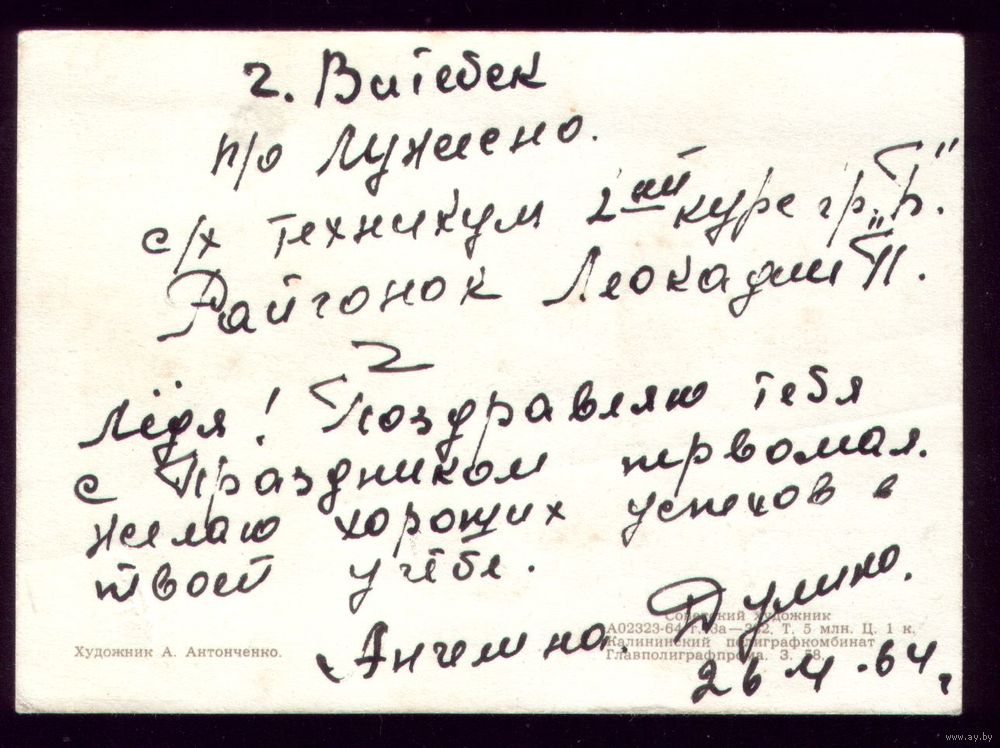 г. Витебск
п/о Лужесно.
с/х техникум 2ий курс гр. „Б".
Райгонок Леокадии П.
Лёдя! Поздравляю тебя
с Праздником первомая.
желаю хороших успехов в
твоей учёбе.
Ангелина. Думино.
26 4 - 64 г
Художник А. Антонченко.
Советский художник
А02323-64 г. Т. 5 млн. Ц. 1 к.
Калининский полиграфкомбинат
Главполиграфпрома. З. 58.
www.ay.by